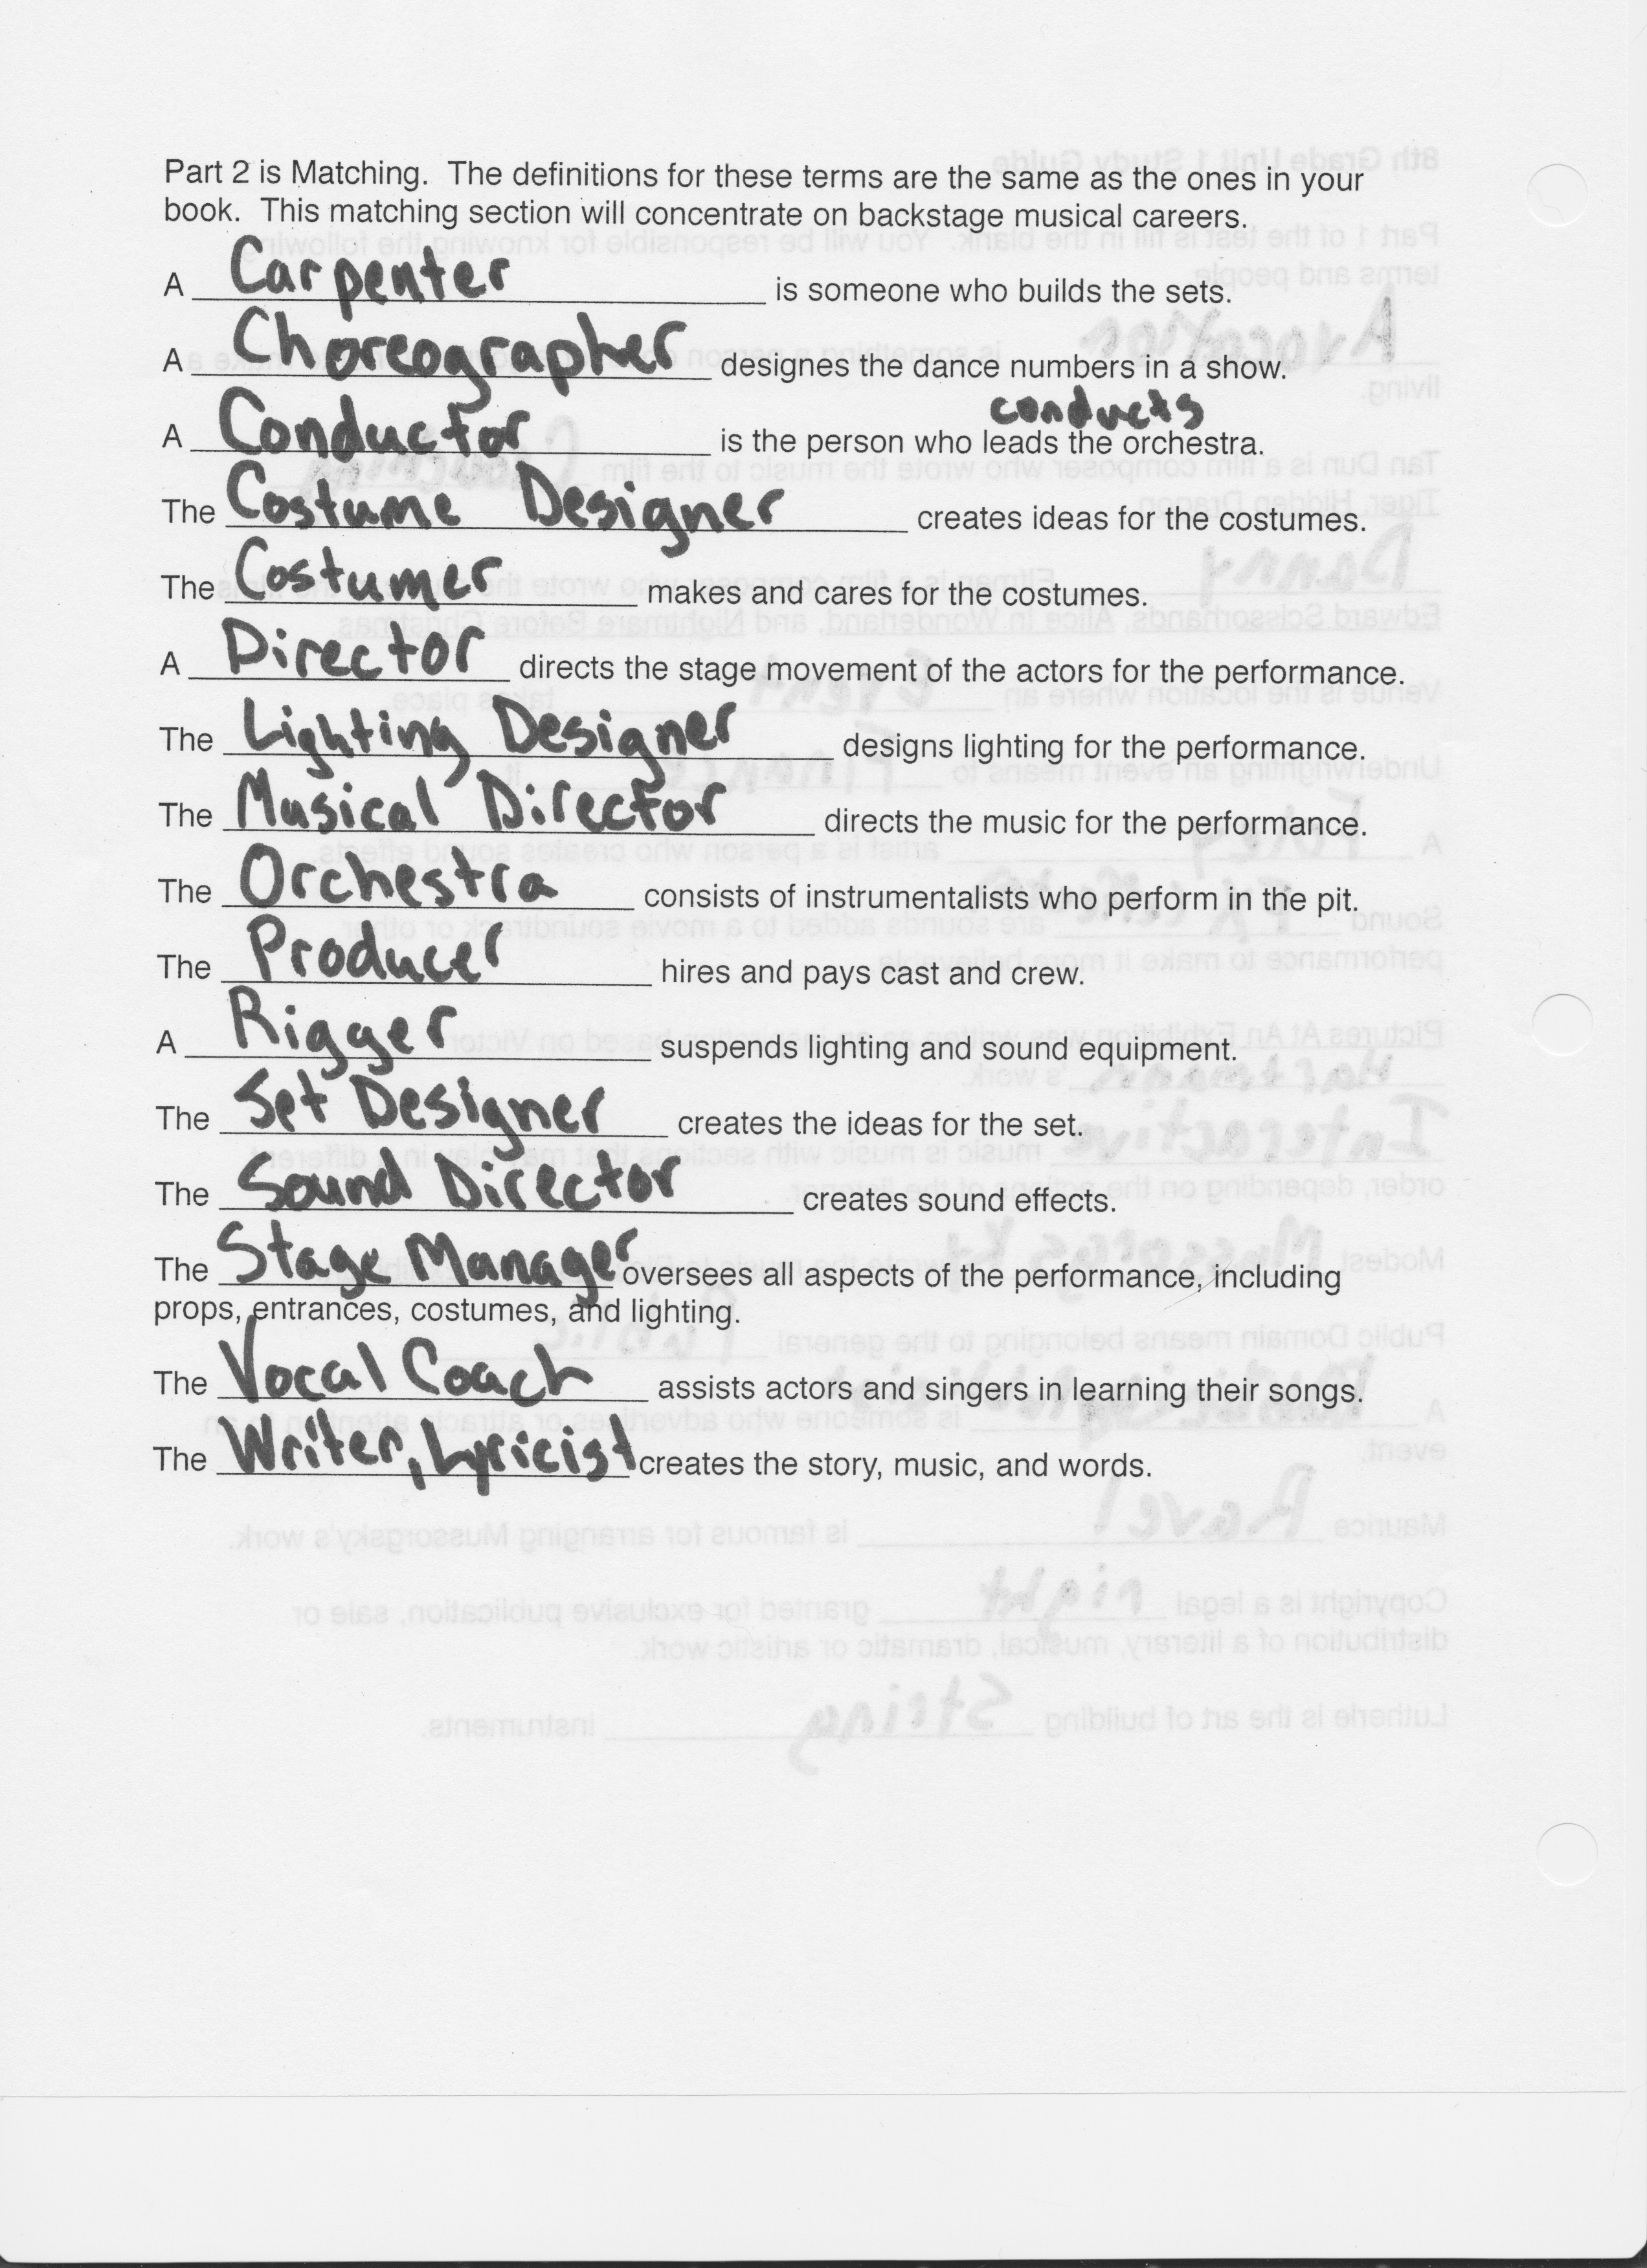 Part 2 is Matching. The definitions for these terms are the same as the ones in your
book. This matching section will concentrate on backstage musical careers.
A Carpenter is someone who builds the sets.
A Choreographer designes the dance numbers in a show.
conducts
A Conductor is the person who leads the orchestra.
The Costume Designer creates ideas for the costumes.
The Costumer makes and cares for the costumes.
A Director directs the stage movement of the actors for the performance.
The Lighting Designer designs lighting for the performance.
The Musical Director directs the music for the performance.
The Orchestra consists of instrumentalists who perform in the pit.
The Producer hires and pays cast and crew.
A Rigger suspends lighting and sound equipment.
The Set Designer creates the ideas for the set.
The Sound Director creates sound effects.
The Stage Manager oversees all aspects of the performance, including
props, entrances, costumes, and lighting.
The Vocal Coach assists actors and singers in learning their songs.
The Writer, Lyricist creates the story, music, and words.